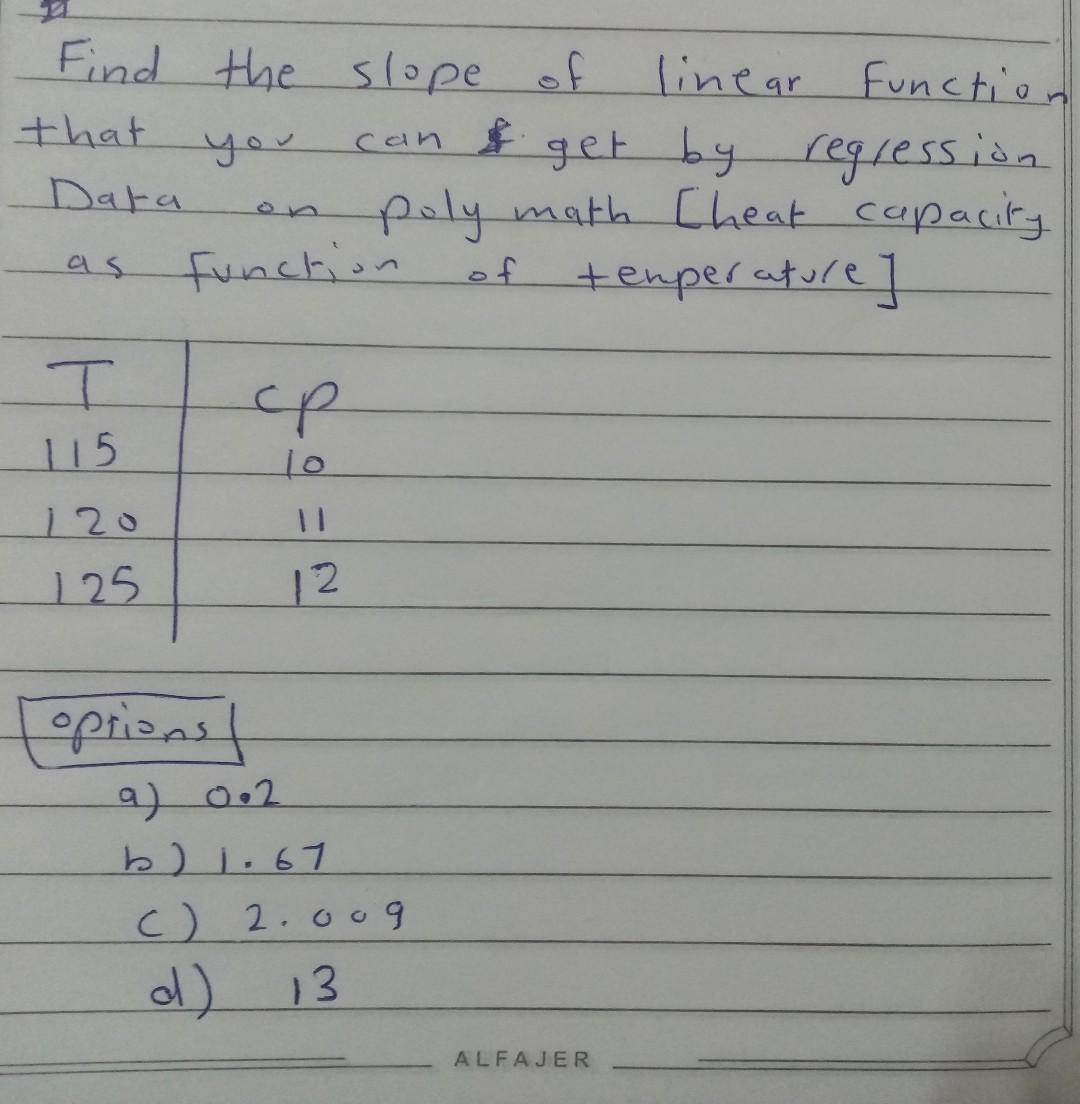 Find the slope of linear Function
that you can get by regression
Data on poly math [heat capacity
as function of tenperature]
T cp
115 10
120 11
125 12
options
a) 0.2
b) 1.67
c) 2.009
d) 13
ALFAJER